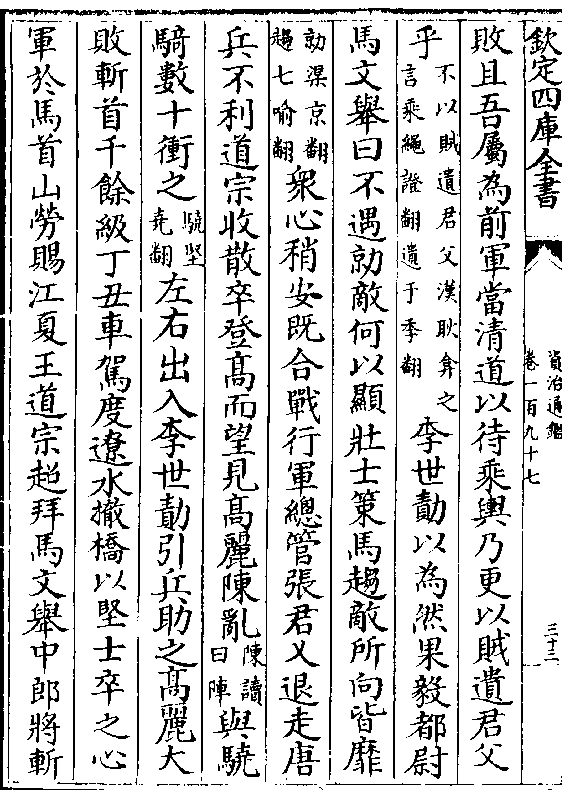 欽定四庫全書
資治通鑑
卷一百九十七
三十二
敗且吾屬為前軍當清道以待乘輿乃更以賊遺君父
乎不以賊遺君父漢耿弇之
言乘繩證翻遺于季翻李世勣以為然果毅都尉
馬文舉曰不遇勍敵何以顯壯士策馬趨敵所向皆靡
勍渠京翻
趨七喻翻衆心稍安既合戰行軍總管張君乂退走唐
兵不利道宗收散卒登高而望見高麗陳亂陳讀
曰陣與驍
騎數十衝之驍堅
堯翻左右出入李世勣引兵助之高麗大
敗斬首千餘級丁丑車駕度遼水撤橋以堅士卒之心
軍於馬首山勞賜江夏王道宗超拜馬文舉中郎將斬